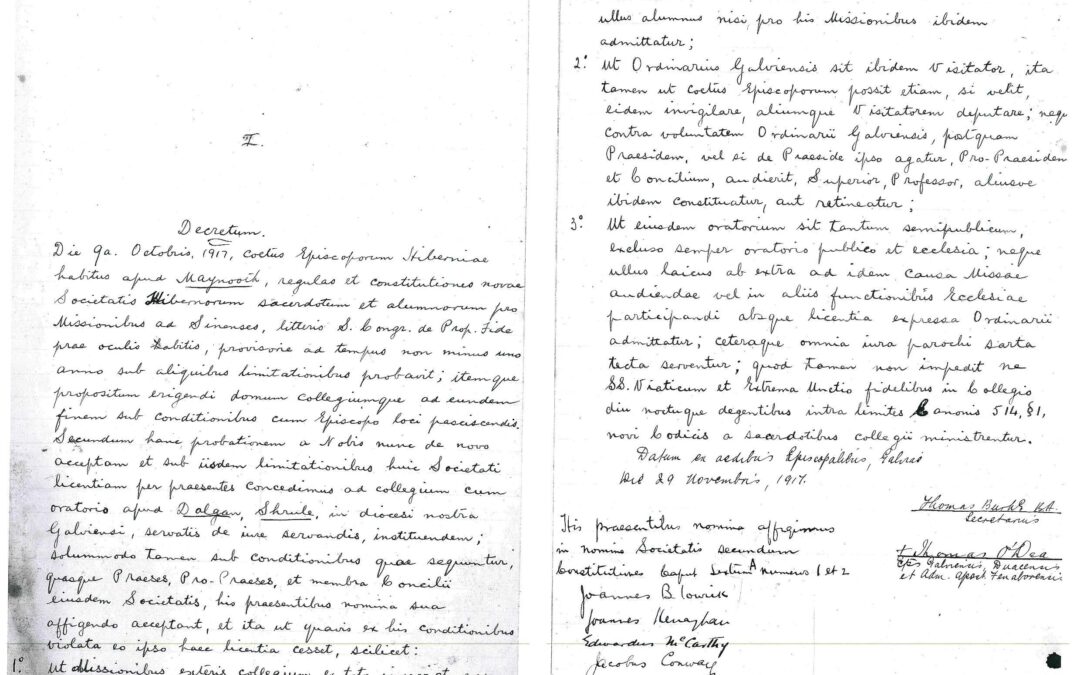 I.
Decretum.
Die 9a. Octobris, 1917, coetus Episcoporum Hiberniae
habitus apud Maynooth, regulas et constitutiones novae
Societatis Hibernorum sacerdotum et alumnorum pro
Missionibus ad Sinenses, litteris S. Congr. de Prop. Fide
prae oculis habitis, provisorie ad tempus non minus uno
anno sub aliquibus limitationibus probavit; itemque
propositum erigendi domum collegiumque ad eundem
finem sub conditionibus cum Episcopo loci paciscendis.
Secundum hanc probationem a Nobis nunc de novo
acceptam et sub iisdem limitationibus huic Societati
licentiam per praesentes concedimus ad collegium cum
oratorio apud Dalgan, Shrule, in dioecesi nostra
Galviensi, servatis de iure servandis, instituendum;
solummodo tamen sub conditionibus quae sequuntur,
quasque Praeses, Pro-Praeses, et membra Concilii
eiusdem Societatis, his praesentibus nomina sua
affigendo acceptant, et ita ut quavis ex his conditionibus
violata eo ipso haec licentia cesset, scilicet:
1º Ut Missionibus exteris collegium
ullus alumnus nisi pro his Missionibus ibidem
admittatur;
2º Ut Ordinarius Galviensis sit ibidem Visitator, ita
tamen ut coetus Episcoporum possit etiam, si velit,
eidem invigilare, aliumque Visitatorem deputare; neq
contra voluntatem Ordinarii Galviensis, postquam
Praesidem, vel si de Praeside ipso agatur, Pro-Praesiden
et Concilium, audierit, Superior, Professor, aliusve
ibidem constituatur, aut retineatur;
3º Ut eiusdem oratorium sit tantum semipublicum,
excluso semper oratorio publico et ecclesia; neque
ullus laicus ab extra ad idem causa Missae
audiendae vel in aliis functionibus Ecclesiae
participandi absque licentia expressa Ordinarii
admittatur; ceteraque omnia iura parochi sarta
tecta serventur; quod tamen non impedit ne
SS. Viaticum et Extrema Unctio fidelibus in Collegio
diu noctuque degentibus intra limites Canonis 514, §1,
novi Codicis a sacerdotibus collegii ministrentur.
Datum ex aedibus Episcopalibus, Galviae
Die 29 Novembris, 1917.
Thomas Burke
Secretarius
+ Thomas O'Dea
Eps Galviensis, Duacensis
et Adm. Apost. Fenaborensis
His praesentibus nomina affigimus
in nomine Societatis secundum
Constitutiones Caput Sextum A numerus 1 et 2
Joannes Blowick
Joannes Henaghan
Edwardus McCarthy
Jacobus Conway